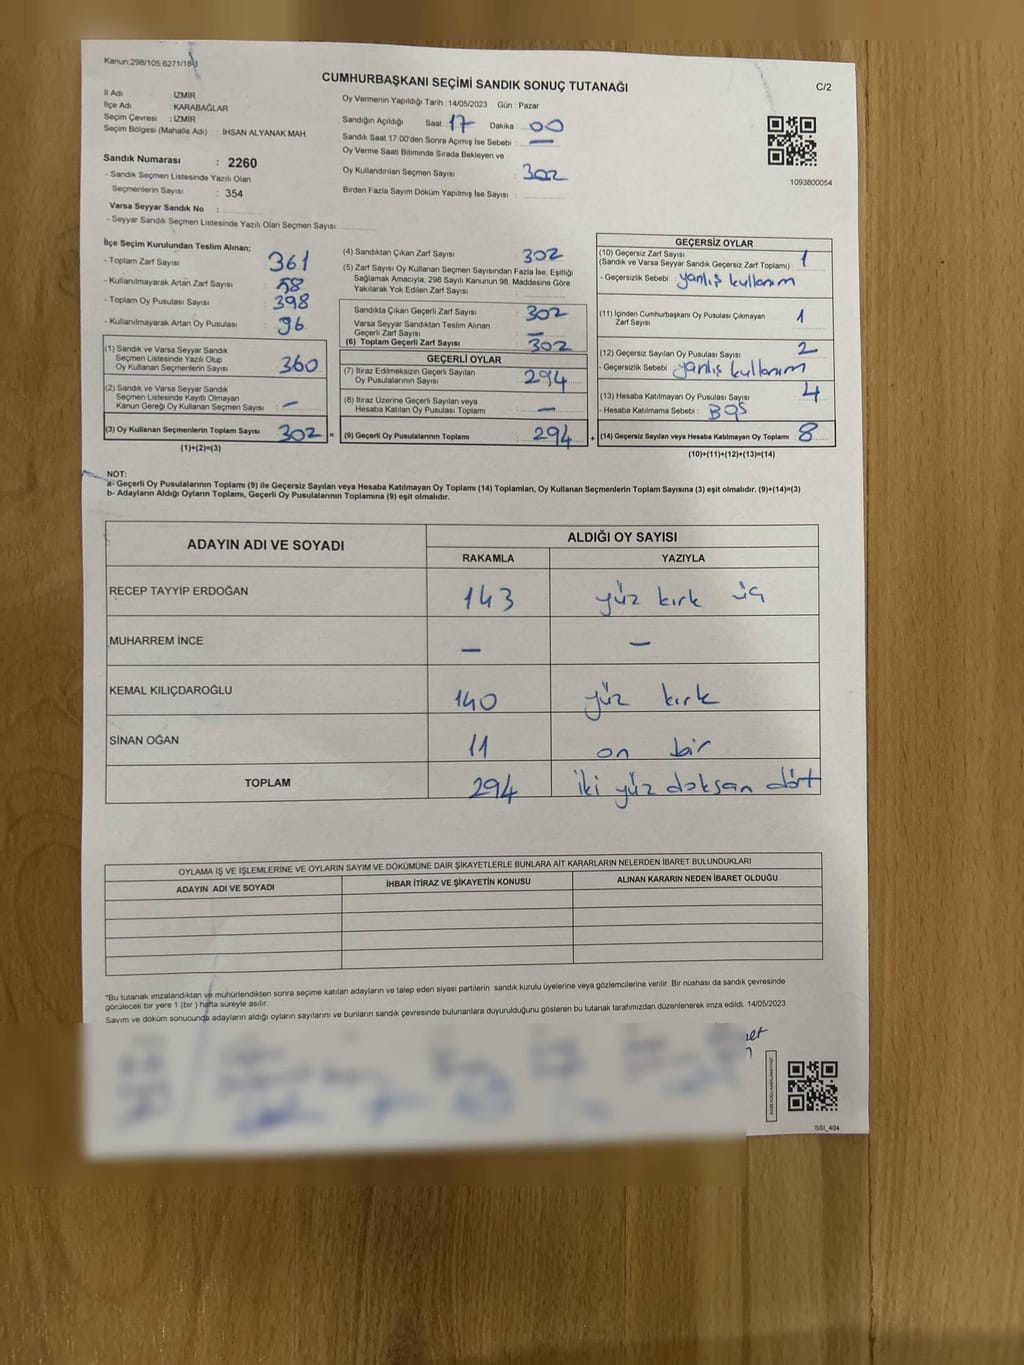 Kanun:298/105,6271/18
CUMHURBAŞKANI SEÇİMİ SANDIK SONUÇ TUTANAĞI
C/2
İl Adı : İZMİR
İlçe Adı : KARABAĞLAR
Seçim Çevresi : İZMİR
Seçim Bölgesi (Mahalle Adı) : İHSAN ALYANAK MAH.
Sandık Numarası : 2260
- Sandık Seçmen Listesinde Yazılı Olan
Seçmenlerin Sayısı : 354
Varsa Seyyar Sandık No :
- Seyyar Sandık Seçmen Listesinde Yazılı Olan Seçmen Sayısı:
Oy Vermenin Yapıldığı Tarih : 14/05/2023 Gün : Pazar
Sandığın Açıldığı Saat 17 Dakika 00
Sandık Saat 17.00'den Sonra Açımış İse Sebebi : —
Oy Verme Saati Bitiminde Sırada Bekleyen ve
Oy Kullandırılan Seçmen Sayısı : 302
Birden Fazla Sayım Döküm Yapılmış İse Sayısı :
1093800054
İlçe Seçim Kurulundan Teslim Alınan;
- Toplam Zarf Sayısı 361
- Kullanılmayarak Artan Zarf Sayısı 58
- Toplam Oy Pusulası Sayısı 398
- Kullanılmayarak Artan Oy Pusulası 96
(1) Sandık ve Varsa Seyyar Sandık
Seçmen Listesinde Yazılı Olup
Oy Kullanan Seçmenlerin Sayısı 360
(2) Sandık ve Varsa Seyyar Sandık
Seçmen Listesinde Kayıtlı Olmayan
Kanun Gereği Oy Kullanan Seçmen Sayısı —
(3) Oy Kullanan Seçmenlerin Toplam Sayısı 302 =
(1)+(2)=(3)
(4) Sandıktan Çıkan Zarf Sayısı : 302
(5) Zarf Sayısı Oy Kullanan Seçmen Sayısından Fazla İse, Eşitliği
Sağlamak Amacıyla, 298 Sayılı Kanunun 98. Maddesine Göre
Yakılarak Yok Edilen Zarf Sayısı :
Sandıkta Çıkan Geçerli Zarf Sayısı : 302
Varsa Seyyar Sandıktan Teslim Alınan
Geçerli Zarf Sayısı : —
(6) Toplam Geçerli Zarf Sayısı : 302
GEÇERLİ OYLAR
(7) İtiraz Edilmeksizin Geçerli Sayılan
Oy Pusulalarının Sayısı : 294
(8) İtiraz Üzerine Geçerli Sayılan veya
Hesaba Katılan Oy Pusulası Toplamı : —
(9) Geçerli Oy Pusulalarının Toplamı : 294 +
GEÇERSİZ OYLAR
(10) Geçersiz Zarf Sayısı
(Sandık ve Varsa Seyyar Sandık Geçersiz Zarf Toplamı) : 1
- Geçersizlik Sebebi : yanlış kullanım
(11) İçinden Cumhurbaşkanı Oy Pusulası Çıkmayan
Zarf Sayısı : 1
(12) Geçersiz Sayılan Oy Pusulası Sayısı : 2
- Geçersizlik Sebebi : yanlış kullanım
(13) Hesaba Katılmayan Oy Pusulası Sayısı : 4
- Hesaba Katılmama Sebebi : BOŞ
(14) Geçersiz Sayılan veya Hesaba Katılmayan Oy Toplamı : 8
(10)+(11)+(12)+(13)=(14)
NOT:
a- Geçerli Oy Pusulalarının Toplamı (9) ile Geçersiz Sayılan veya Hesaba Katılmayan Oy Toplamı (14) Toplamları, Oy Kullanan Seçmenlerin Toplam Sayısına (3) eşit olmalıdır. (9)+(14)=(3)
b- Adayların Aldığı Oyların Toplamı, Geçerli Oy Pusulalarının Toplamına (9) eşit olmalıdır.
ADAYIN ADI VE SOYADI
ALDIĞI OY SAYISI
RAKAMLA YAZIYLA
RECEP TAYYİP ERDOĞAN 143 yüz kırk üç
MUHARREM İNCE — —
KEMAL KILIÇDAROĞLU 140 yüz kırk
SİNAN OĞAN 11 on bir
TOPLAM 294 iki yüz doksan dört
OYLAMA İŞ VE İŞLEMLERİNE VE OYLARIN SAYIM VE DÖKÜMÜNE DAİR ŞİKAYETLERLE BUNLARA AİT KARARLARIN NELERDEN İBARET BULUNDUKLARI
ADAYIN ADI VE SOYADI İHBAR İTİRAZ VE ŞİKAYETİN KONUSU ALINAN KARARIN NEDEN İBARET OLDUĞU
"Bu tutanak imzalandıktan ve mühürlendikten sonra seçime katılan adayların ve talep eden siyasi partilerin sandık kurulu üyelerine veya gözlemcilerine verilir. Bir nüshası da sandık çevresinde
görülecek bir yere 1 (bir ) hafta süreyle asılır.
Sayım ve döküm sonucunda adayların aldığı oyların sayılarını ve bunların sandık çevresinde bulunanlara duyurulduğunu gösteren bu tutanak tarafımızdan düzenlenerek imza edildi. 14/05/2023
SSI_404